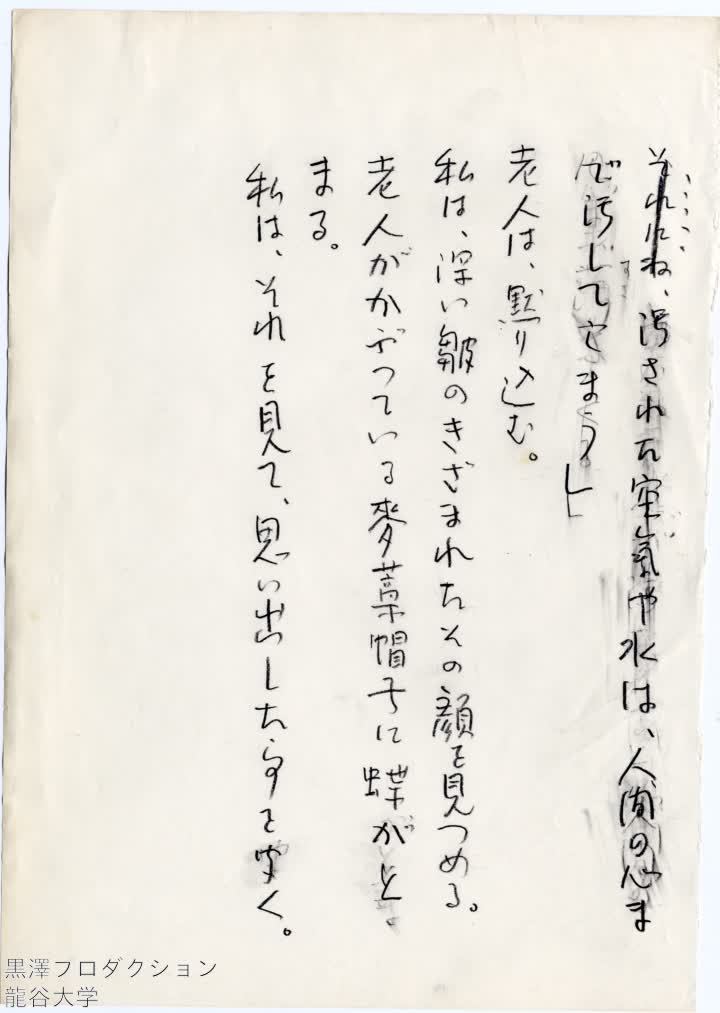 それにね、汚された空氣や水は、人間の心ま
で汚してしまう」
老人は、黙り込む。
私は、深い皺のきざまれたその顔を見つめる。
老人がかぶっている麥藁帽子に蝶がと
まる。
私は、それを見て、思い出した事を聞く。
黒澤プロダクション
龍谷大学